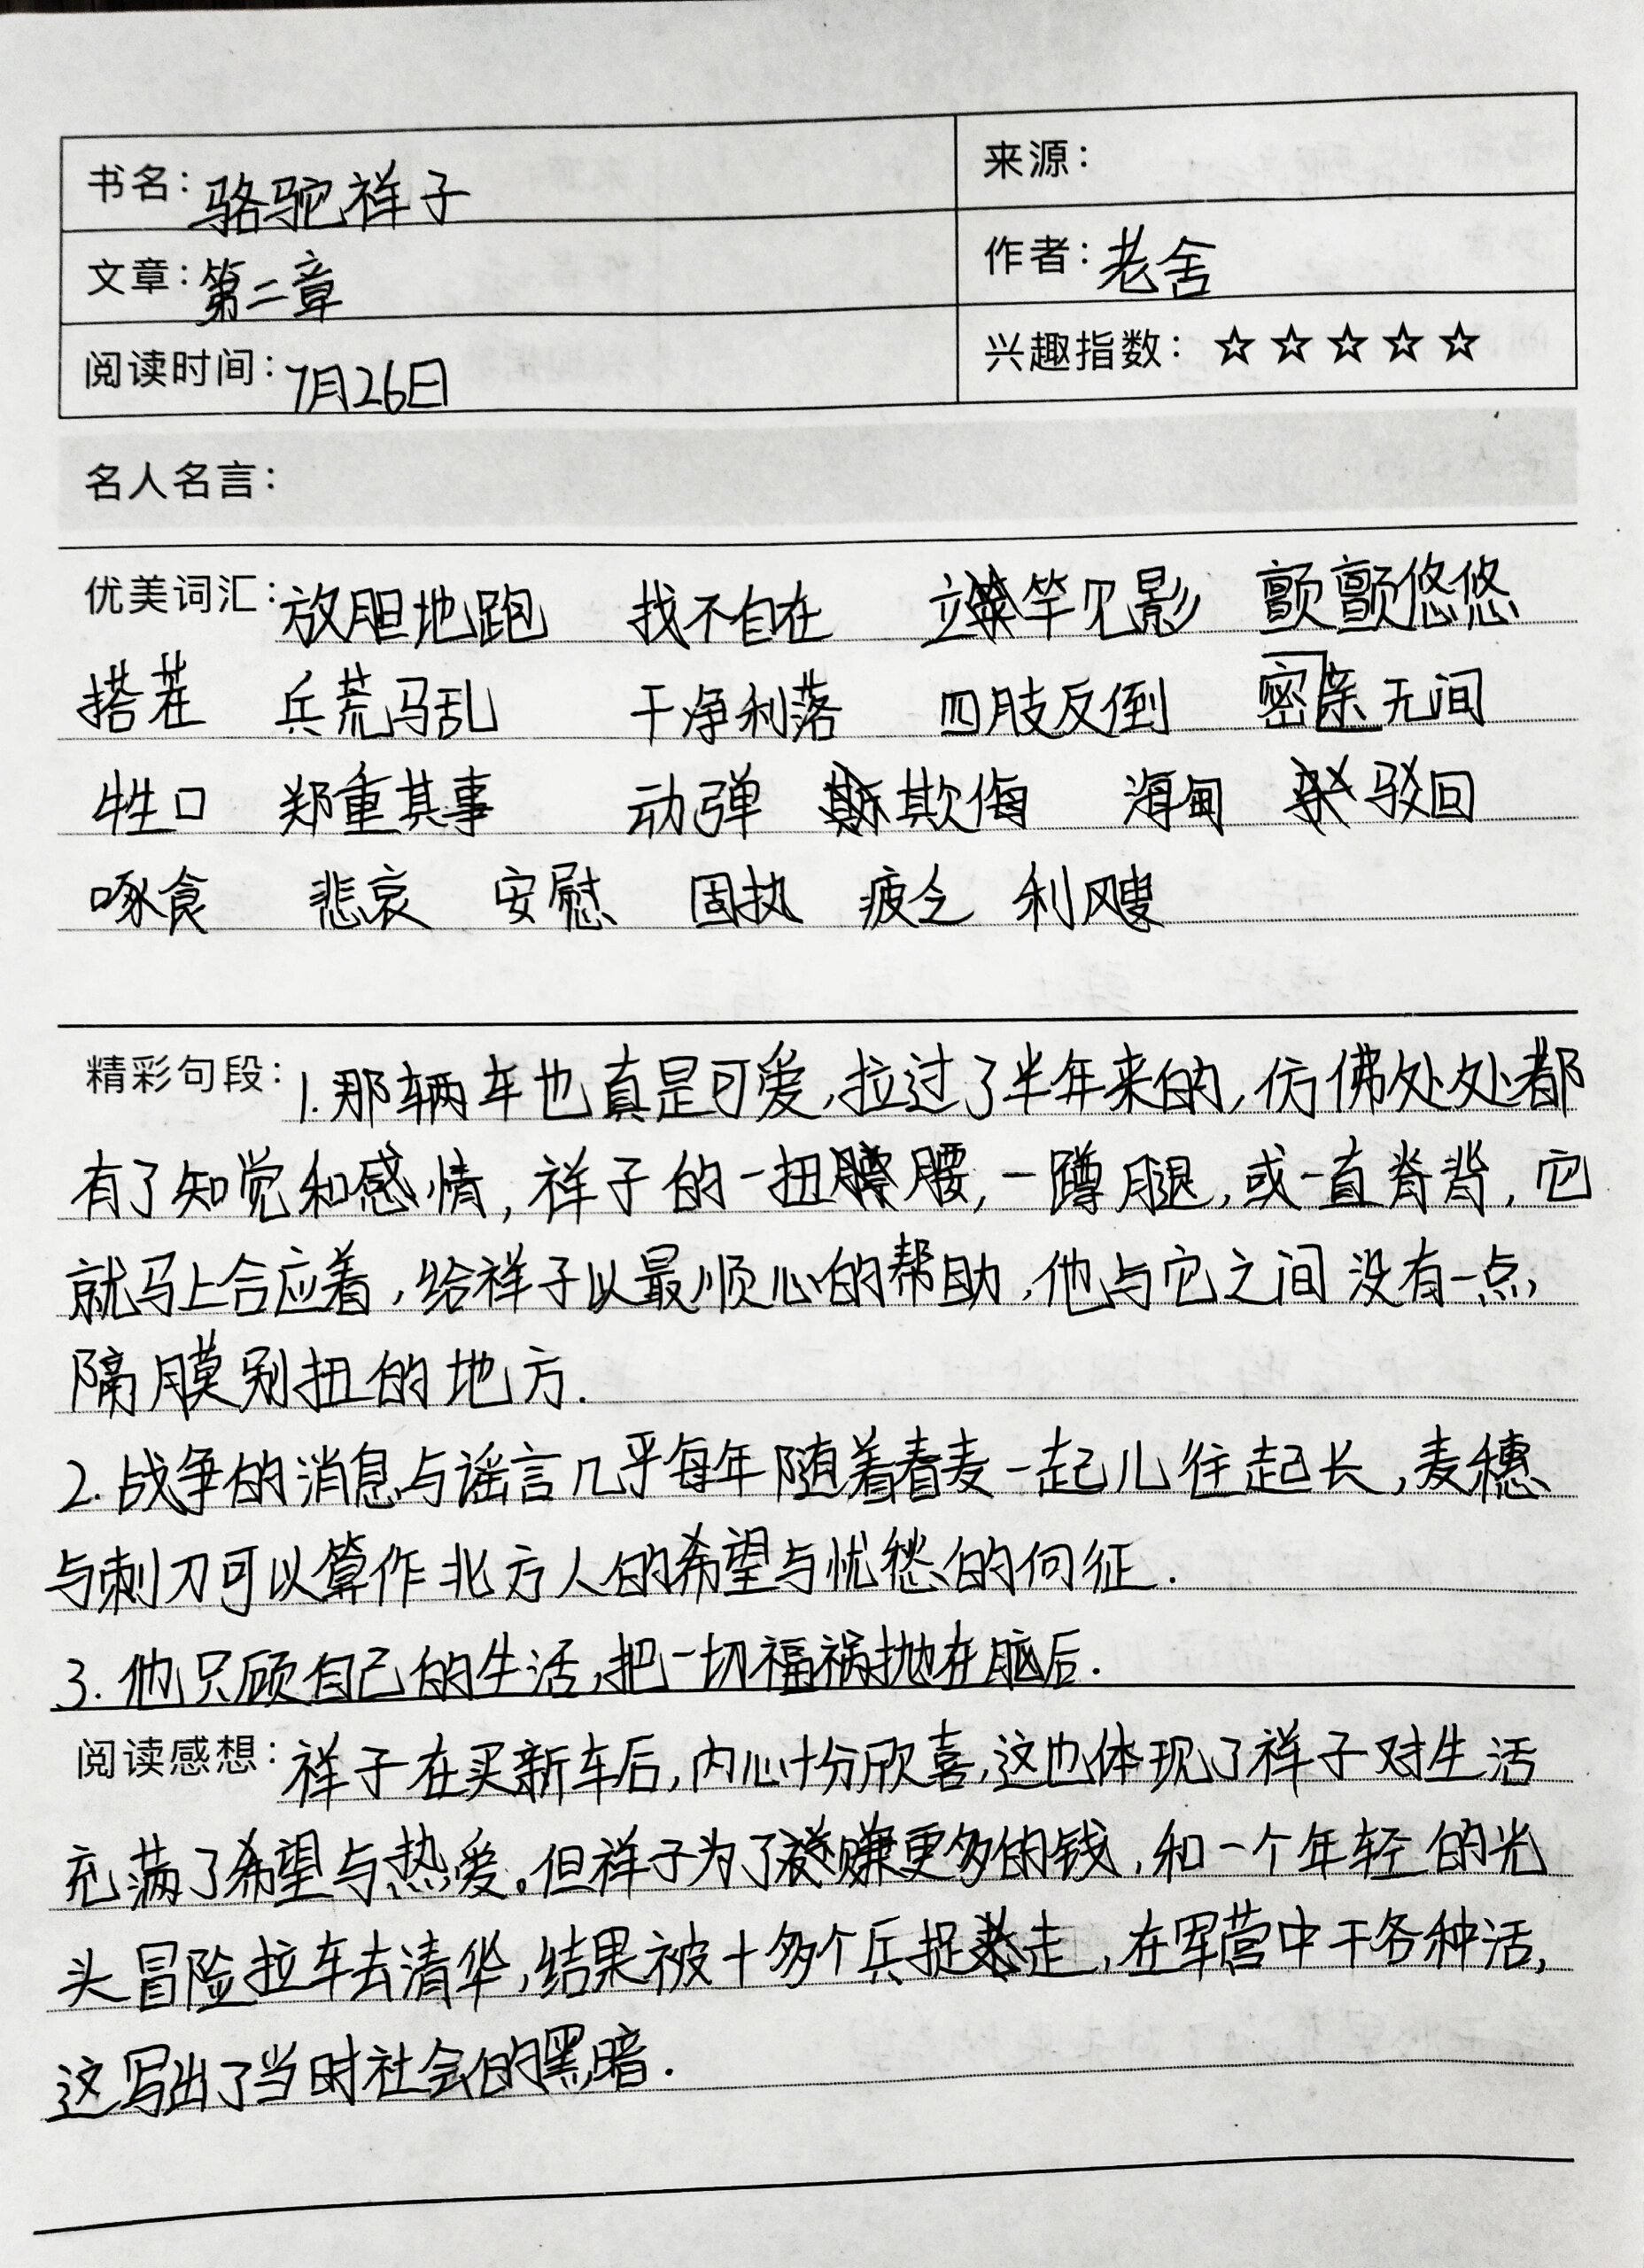 书名：骆驼祥子
来源：
文章：第二章
作者：老舍
阅读时间：7月26日
兴趣指数：☆☆☆☆☆
名人名言：
优美词汇：放胆地跑 找不自在 立竿见影 颤颤悠悠
搭茬 兵荒马乱 干净利落 四肢反倒 密亲无间
牲口 郑重其事 动弹 欺侮 海甸 驳回
啄食 悲哀 安慰 固执 疲乏 利飕
精彩句段：1.那辆车也真是可爱,拉过了半年来的,仿佛处处都
有了知觉和感情,祥子的一扭腰,一蹲腿,或一直脊背,它
就马上合应着,给祥子以最顺心的帮助,他与它之间没有一点
隔膜别扭的地方.
2.战争的消息与谣言几乎每年随着春麦一起儿往起长,麦穗
与刺刀可以算作北方人的希望与忧愁的何征.
3.他只顾自己的生活,把一切福祸抛在脑后.
阅读感想：祥子在买新车后,内心十分欣喜,这也体现了祥子对生活
充满了希望与热爱。但祥子为了赚更多的钱,和一个年轻的光
头冒险拉车去清华,结果被十多个兵捉走,在军营中干各种活,
这写出了当时社会的黑暗.